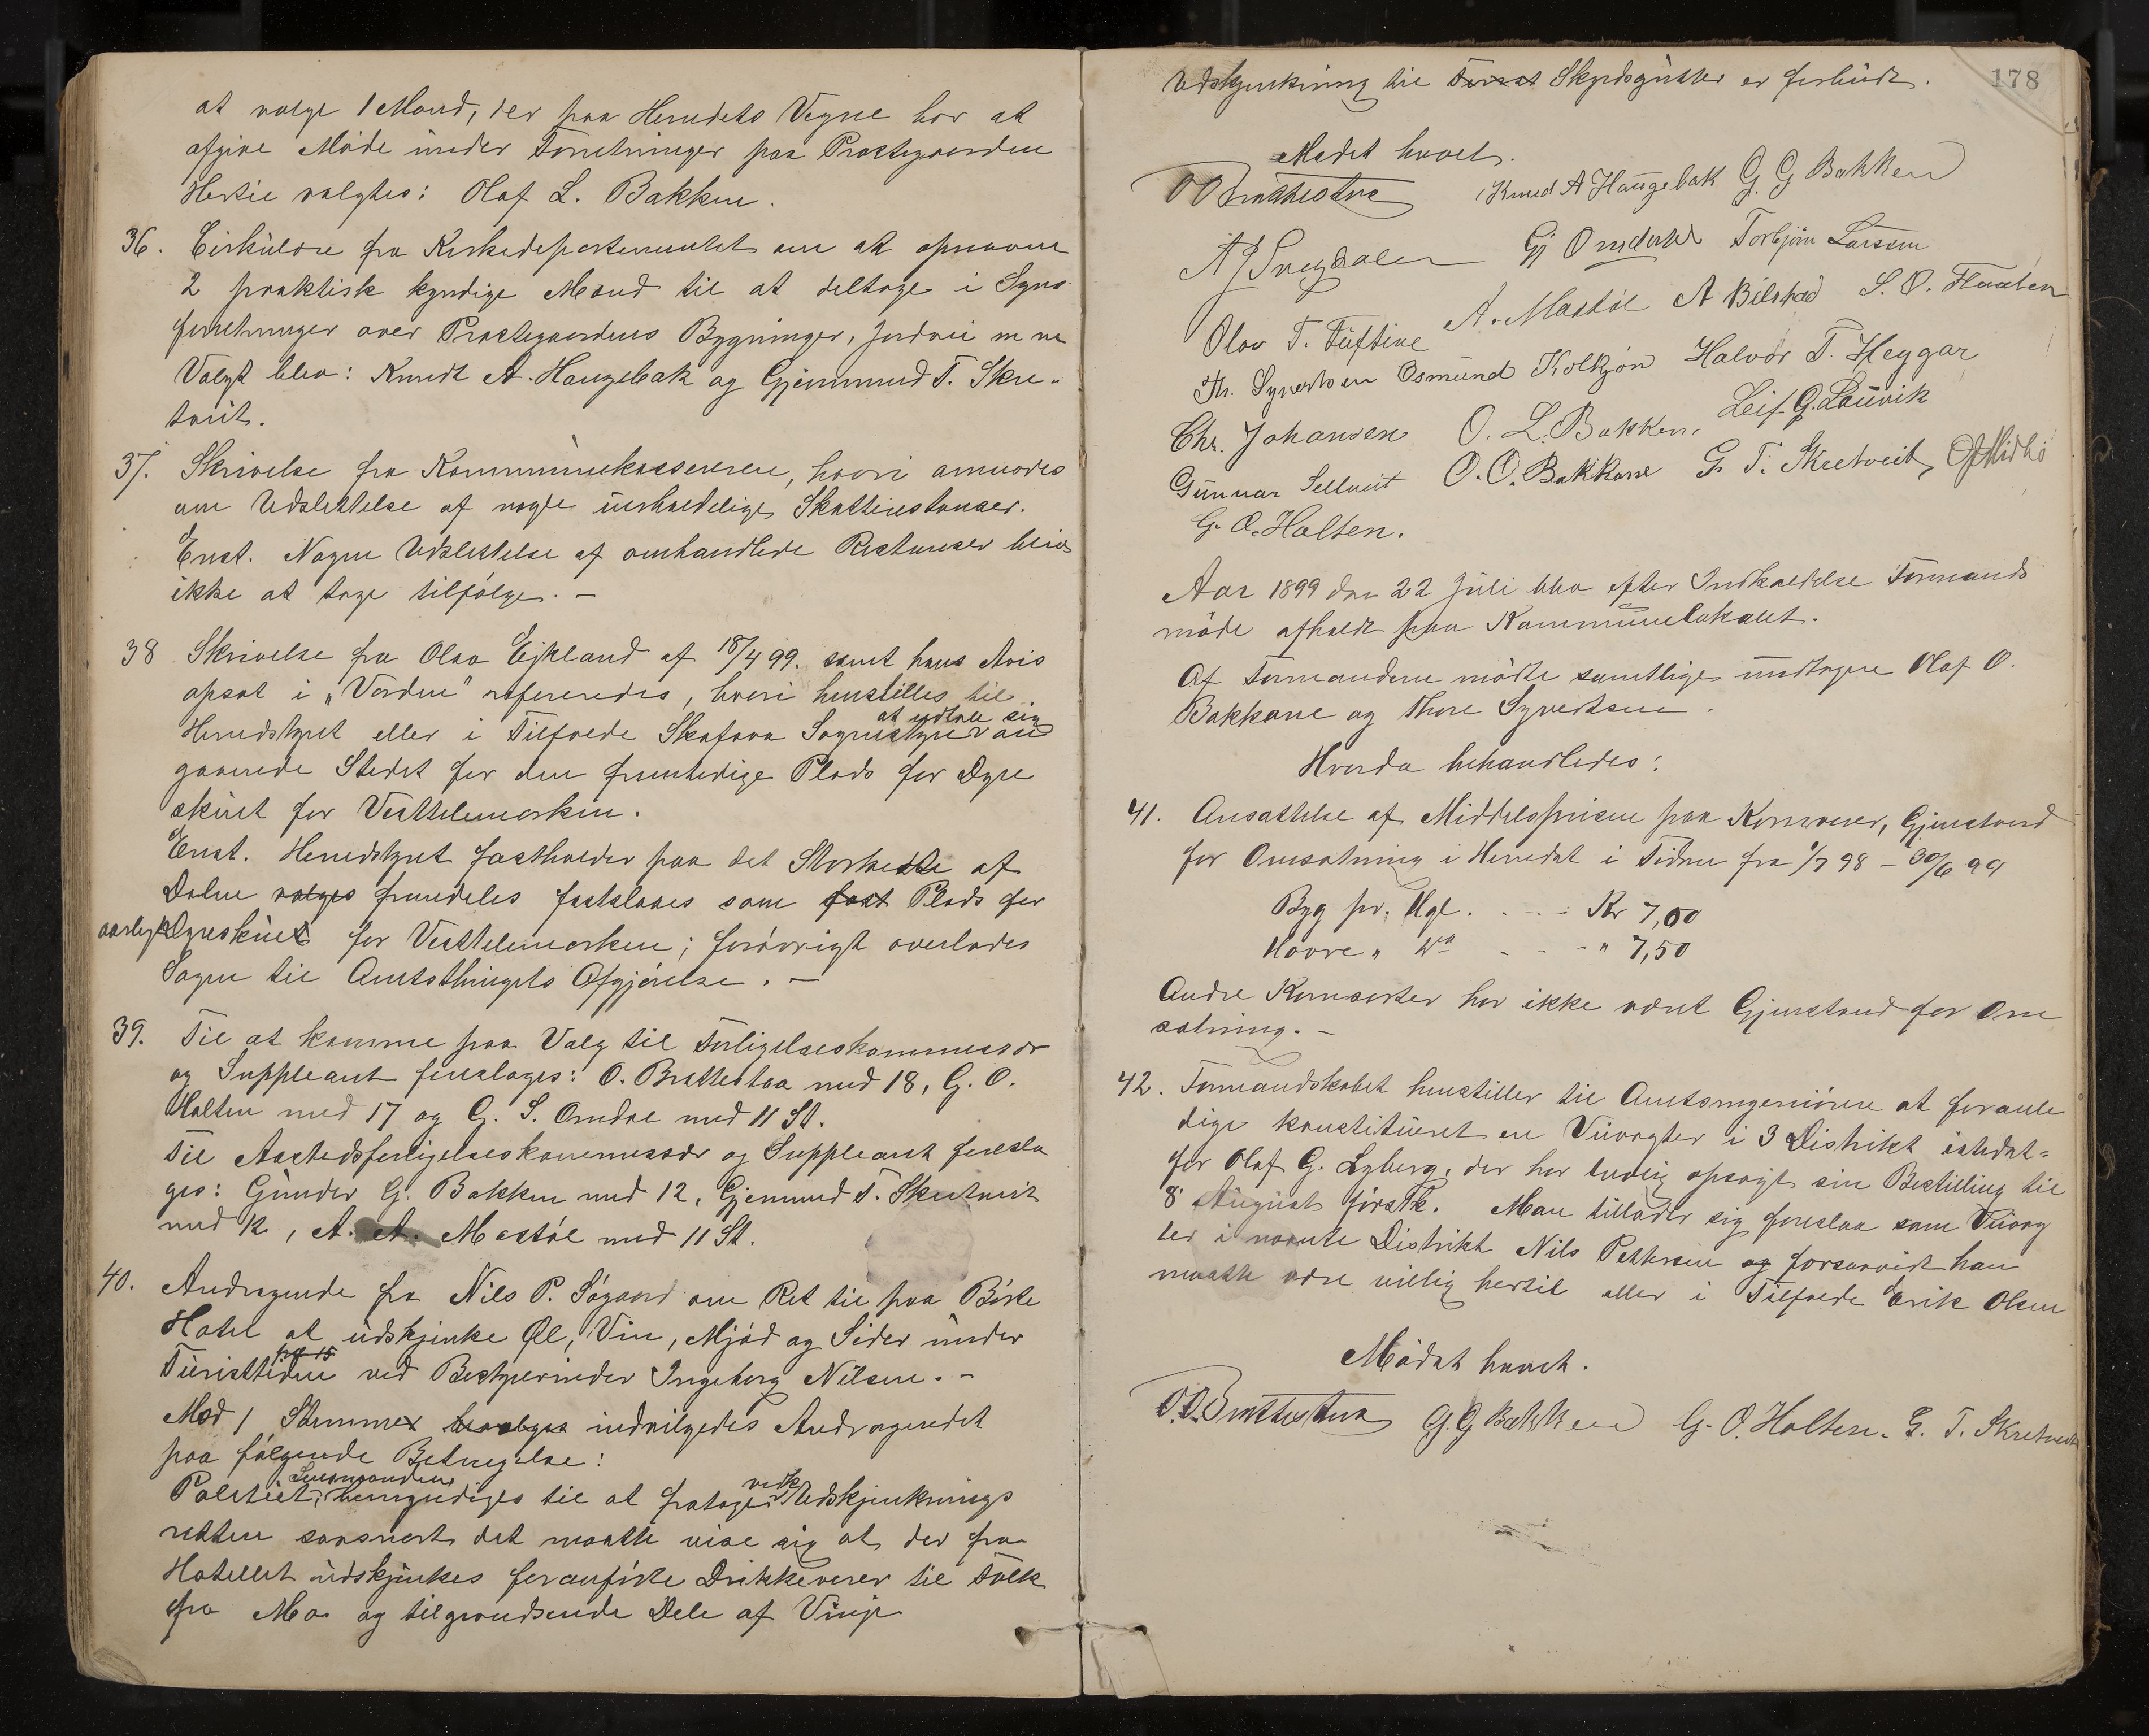 at vælge 1 Mand, der paa Herredets Vegne har at
afgive Møde under Forretninger paa Præstegaarden
Hertil valgtes: Olaf L. Bakken.
36. Cirkulære fra Kirkedepartementet om at opnævne
2 praktisk kyndige Mænd til at deltage i Syns
forretninger over Præstegaardens Bygninger, Jordvei m m
Valgt blev: Knudt A. Haugebak og Gjermund T. Skre-
tveit.
37. Skrivelse fra Kommunekassereren, hvori anmodes
om Udslettelse af nogle uerholdelige Skatterestanser.
Enst. Nogen Udslettelse af omhandlede Restanser blev
ikke at tage tilfølge. —
38 Skrivelse fra Olav Eikland af 18/4 99. samt hans Avis
opsat i „Varden" refereredes, hvori henstilles til
Herredstyret eller i Tilfælde Skafsaa Sognestyre at udtale sig an
gaaende Stedet for den fremtidige Plads for Dyre
skuet for Vesttelemarken.
Enst. Herredstyret fastholder paa det Stærkeste at
Dalen vælges fremdeles fastslaaes som fast Plads for
aarlige Dyreskuet for Vesttelemarken; forøvrigt overlades
Sagen til Amtsthingets Afgjørelse. —
39. Til at komme paa Valg til Forligelseskommissær
og Suppleant foreslages: O. Brattestaa med 18, G. O.
Holten med 17 og G. S. Omdal med 11 St.
Til Aastedsforligelseskommissær og Suppleant foresla
ges: Gunder G. Bakken med 12, Gjermund T. Skretveit
med 12, A. A. Mastøl med 11 St.
40. Andragende fra Nils P. Søgaard om Ret til paa Børte
Hotel at udskjænke Øl, Vin, Mjød og Sider under
Turisttiden ved Bestyrerinden Ingeborg Nilsen. -
Mod 1 Stemmer indvilgedes Andragendet
paa følgende Betingelse:
Politiet, Lensmanden, bemyndiges til at fratage vedk Udskjænknings
retten saasnart det maatte vise sig at der fra
Hotellet udskjænkes foranførte Drikkevarer til Folk
fra Mo og tilgrændsende Dele af Vinje
178
Udskjænkning til Skydsgutter er forbudt.
Mødet hævet.
O O Brattestaa Knud A Haugebak G. G Bakken
Gj Omdal Torbjørn Larsen
Olav T. Tuftine A. Mastøl A Bilstad S. O. Flaaten
Th. Syvertsen Osmund Kolkjøn Halvor T. Heggar
Chr. Johansen O. L. Bakken. Leif G. Lauvik
Gunnar Selltveit O. O. Bakkane G. T. Skretveit, O J Midbø
G. O. Holten.
Aar 1899 den 22 Juli blev efter Indkaldelse Formands
møde afholdt paa Kommunelokalet.
Af Formændene mødte samtlige undtagen Olaf O.
Bakkane og Thore Syvertsen.
Hvorda behandledes:
41. Ansættelse af Middelsprisen paa Kornvarer, Gjenstand
for Omsætning i Herredet i Tiden fra 1/7 98 – 30/6 99
Byg pr. Hgl. . . . . Kr 7,00
Havre „ do . . . . „ 7,50
Andre Kornsorter har ikke været Gjenstand for Om
sætning. -
42. Formandskabet henstiller til Amtsingeniøren at foranle
dige konstitueret en Veivogter i 3 Distrikt istedet-
for Olaf G. Lyberg, der har lovlig opsagt sin Bestilling til
8 August førstk. Man tillader sig foreslaa som Veivog
ter i nævnte Distrikt Nils Pettersen og forsaavidt han
maatte være villig hertil eller i Tilfælde Erik Olsen
Mødet hævet.
O. O. Brattestaa G. G Bakken G. O. Holten. G. T. Skretveit